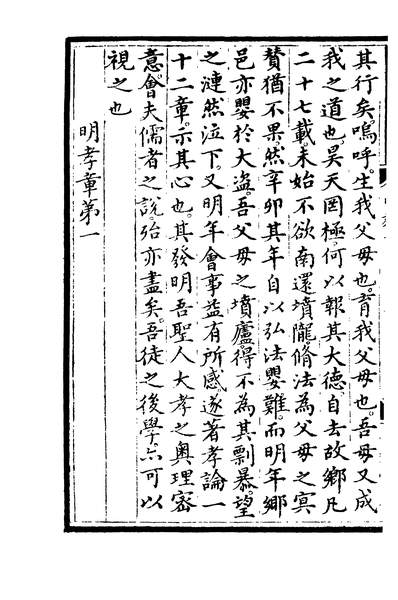 其行矣。嗚呼。生我父母也。育我父母也。吾母又成
我之道也。昊天罔極。何以報其大德。自去故鄉凡
二十七載。未始不欲南還墳隴。脩法為父母之冥
賛猶不果。然辛卯其年自以弘法嬰難。而明年鄉
邑亦嬰於大盜。吾父母之墳廬。得不為其剽暴望
之漣然泣下。又明年會事益有所感。遂著孝論一
十二章。示其心也。其發明吾聖人大孝之奧理密
意。會夫儒者之說。殆亦盡矣。吾徒之後學。亦可以
視之也
明孝章第一